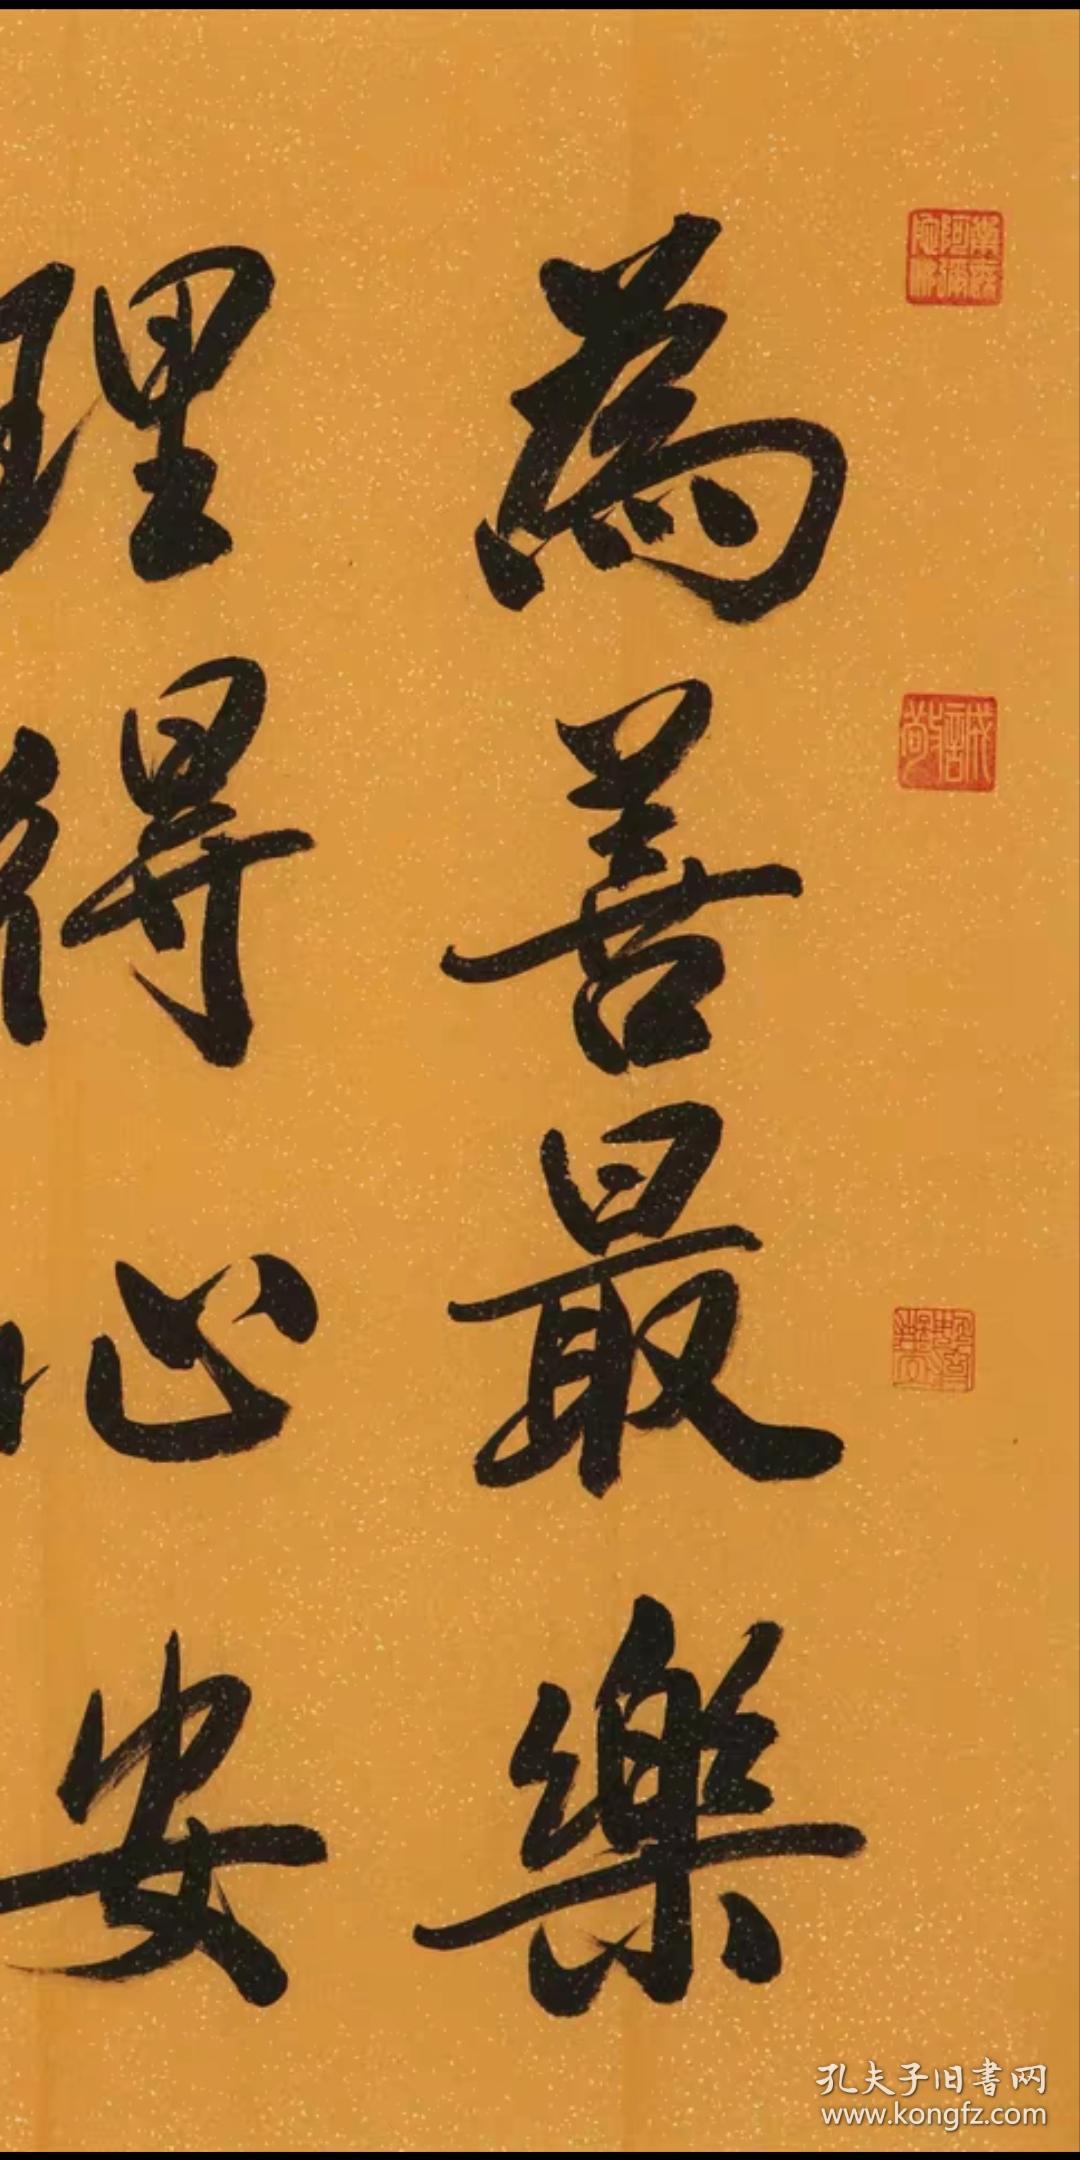 為善最樂
理得心安
誠敬
孔夫子旧書网
www.kongfz.com